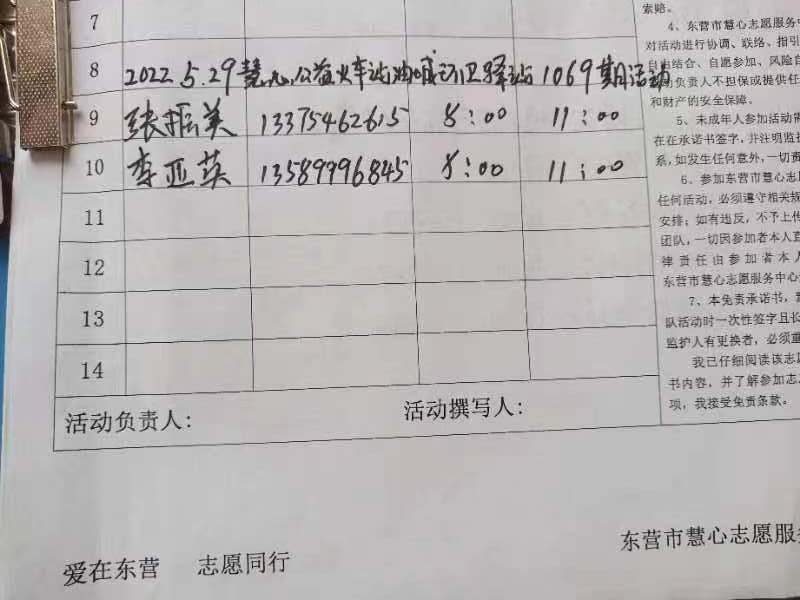 7
8 2022.5.29慧心公益火车站油城环卫驿站1069期活动
9 张振美 13375462615 8:00 11:00
10 李亚英 13589996845 8:00 11:00
11
12
13
14
活动负责人: 活动撰写人:
索赔。
4、东营市慧心志愿服务中
对活动进行协调、联络、指引
自由结合、自愿参加、风险自
动负责人不担保或提供任
和财产的安全保障。
5、未成年人参加活动需
在在承诺书签字，并注明监护
系,如发生任何意外,一切责
6、参加东营市慧心志愿
任何活动，必须遵守相关规
安排；如有违反，不予上传
团队，一切因参加者本人直
律责任由参加者本人
东营市慧心志愿服务中心
7、本免责承诺书，需
队活动时一次性签字且长
监护人有更换者，必须重
我已仔细阅读该志愿
书内容，并了解参加志
项，我接受免责条款。
东营市慧心志愿服务
爱在东营 志愿同行